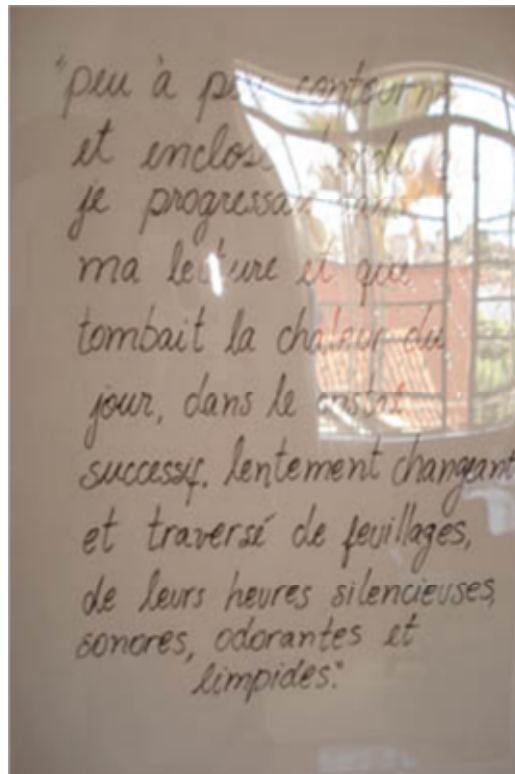 "peu à peu contourné
et enclose, tandis que
je progressais dans
ma lecture et que
tombait la chaleur du
jour, dans le cristal
successif, lentement changeant
et traversé de feuillages,
de leurs heures silencieuses,
sonores, odorantes et
limpides."